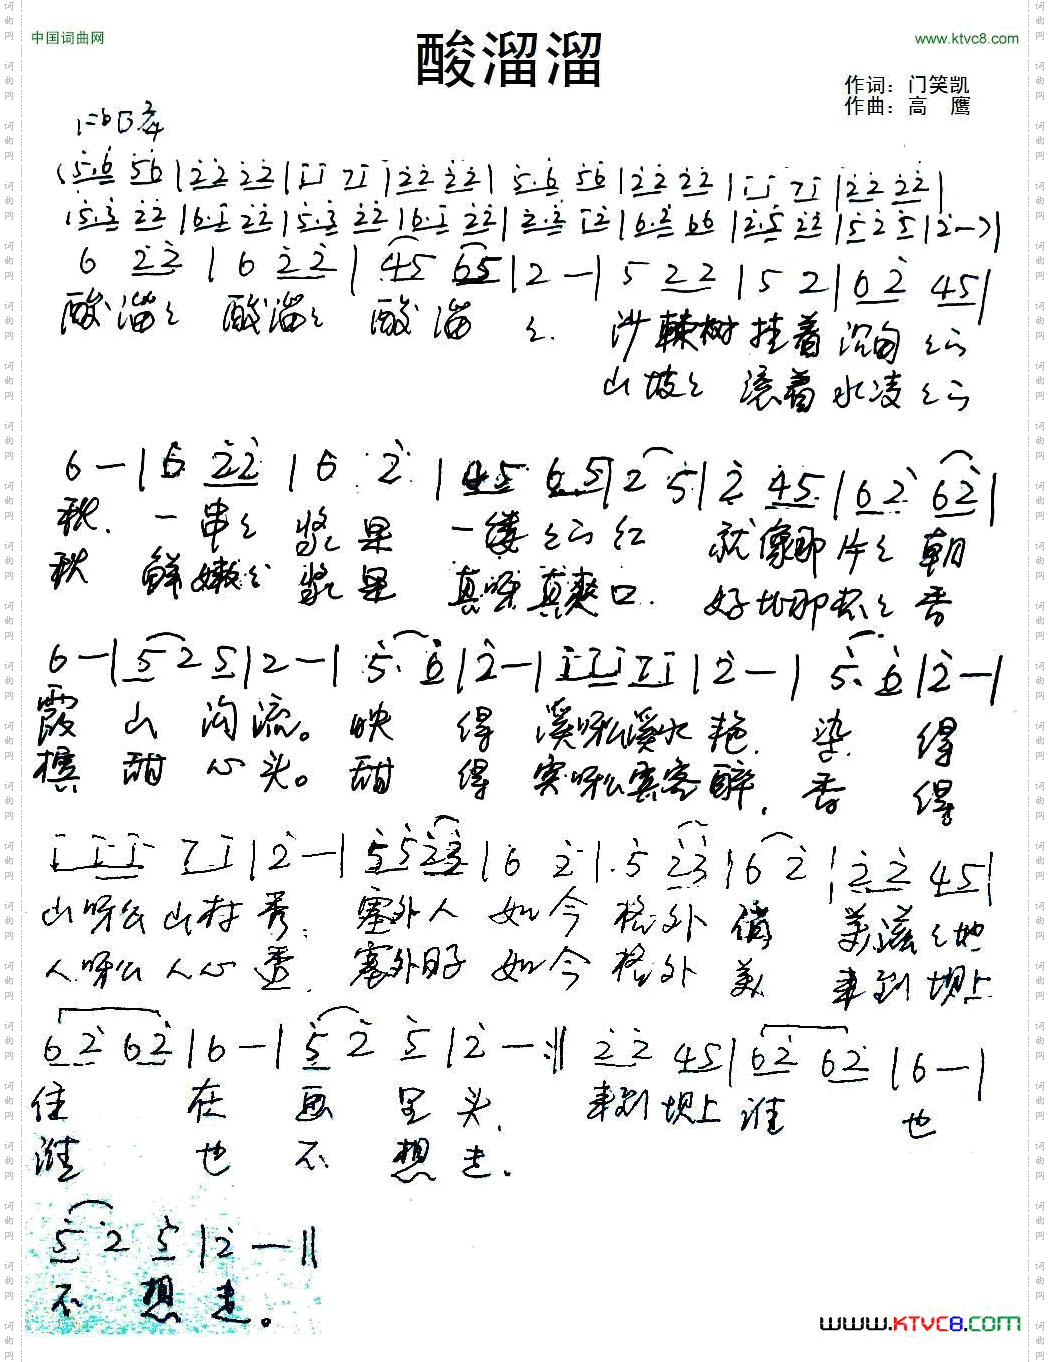 中国词曲网
www.ktvc8.com
酸溜溜
作词：门笑凯
作曲：高 鹰
1=bB 2/4
(5.6 56|22 22|11 71|22 22|5.6 56|22 22|11 71|22 22|
5.3 22|6.1 22|5.3 22|6.1 22|2.2 12|6.2 66|2.5 22|5 2 5|2-)|
6 22|6 22|45 65|2-|5 22|5 2|62 45|
酸溜々 酸溜々 酸溜々. 沙棘树挂着沉甸々的
山坡々 滚着水凌々的
6-|6 22|6 2|45 6.5|2 5|2 45|62 62|
秋. 一串々 浆果 一缕々的红 就像那片々朝
秋 鲜嫩々 浆果 真呀真爽口. 好比那杯々香
6-|5 2 5|2-|5. 6|2-|111 71|2-|5. 6|2-|
霞 山沟流。映得 溪呀么溪水艳. 染得
槟 甜心头。甜得 宾呀么宾客醉, 香得
111 71|2-|5523|6 2|5 23|6 2|22 45|
山呀么山村秀; 塞外人 如今格外俏 美滋々地
人呀么人心透. 塞外日子 如今格外美 来到坝上
62 62|6-|5 2 5|2-:‖ 22 45|62 62|6-|
住 在画里头. 来到坝上谁 也
谁 也不想走.
5 2 5|2-‖
不想走。
www.KTVC8.com